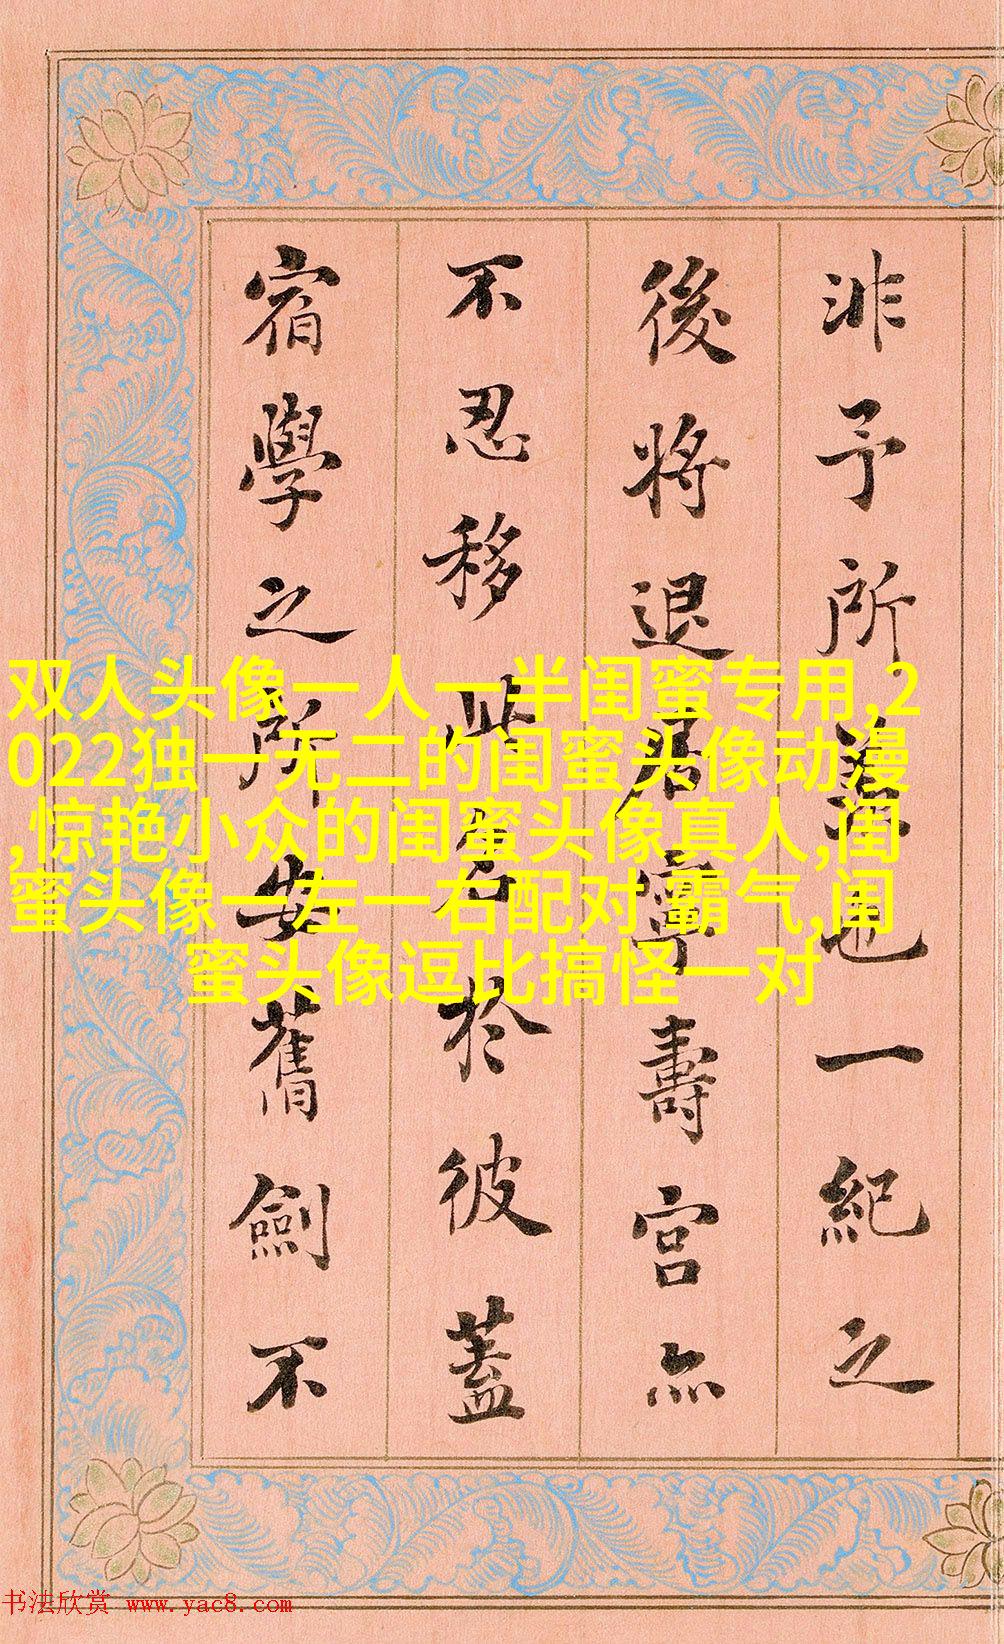 非予所也一紀之
後將退居寧壽宮亦
不忍移此於彼蓋
宿學之所安舊劍不
双人头像一人一半闺蜜专用,2
022独一无二的闺蜜头像动漫
,惊艳小众的闺蜜头像真人,闺
蜜头像一左一右配对霸气,闺
蜜头像逗比搞怪一对
书法欣赏 www.yac8.com